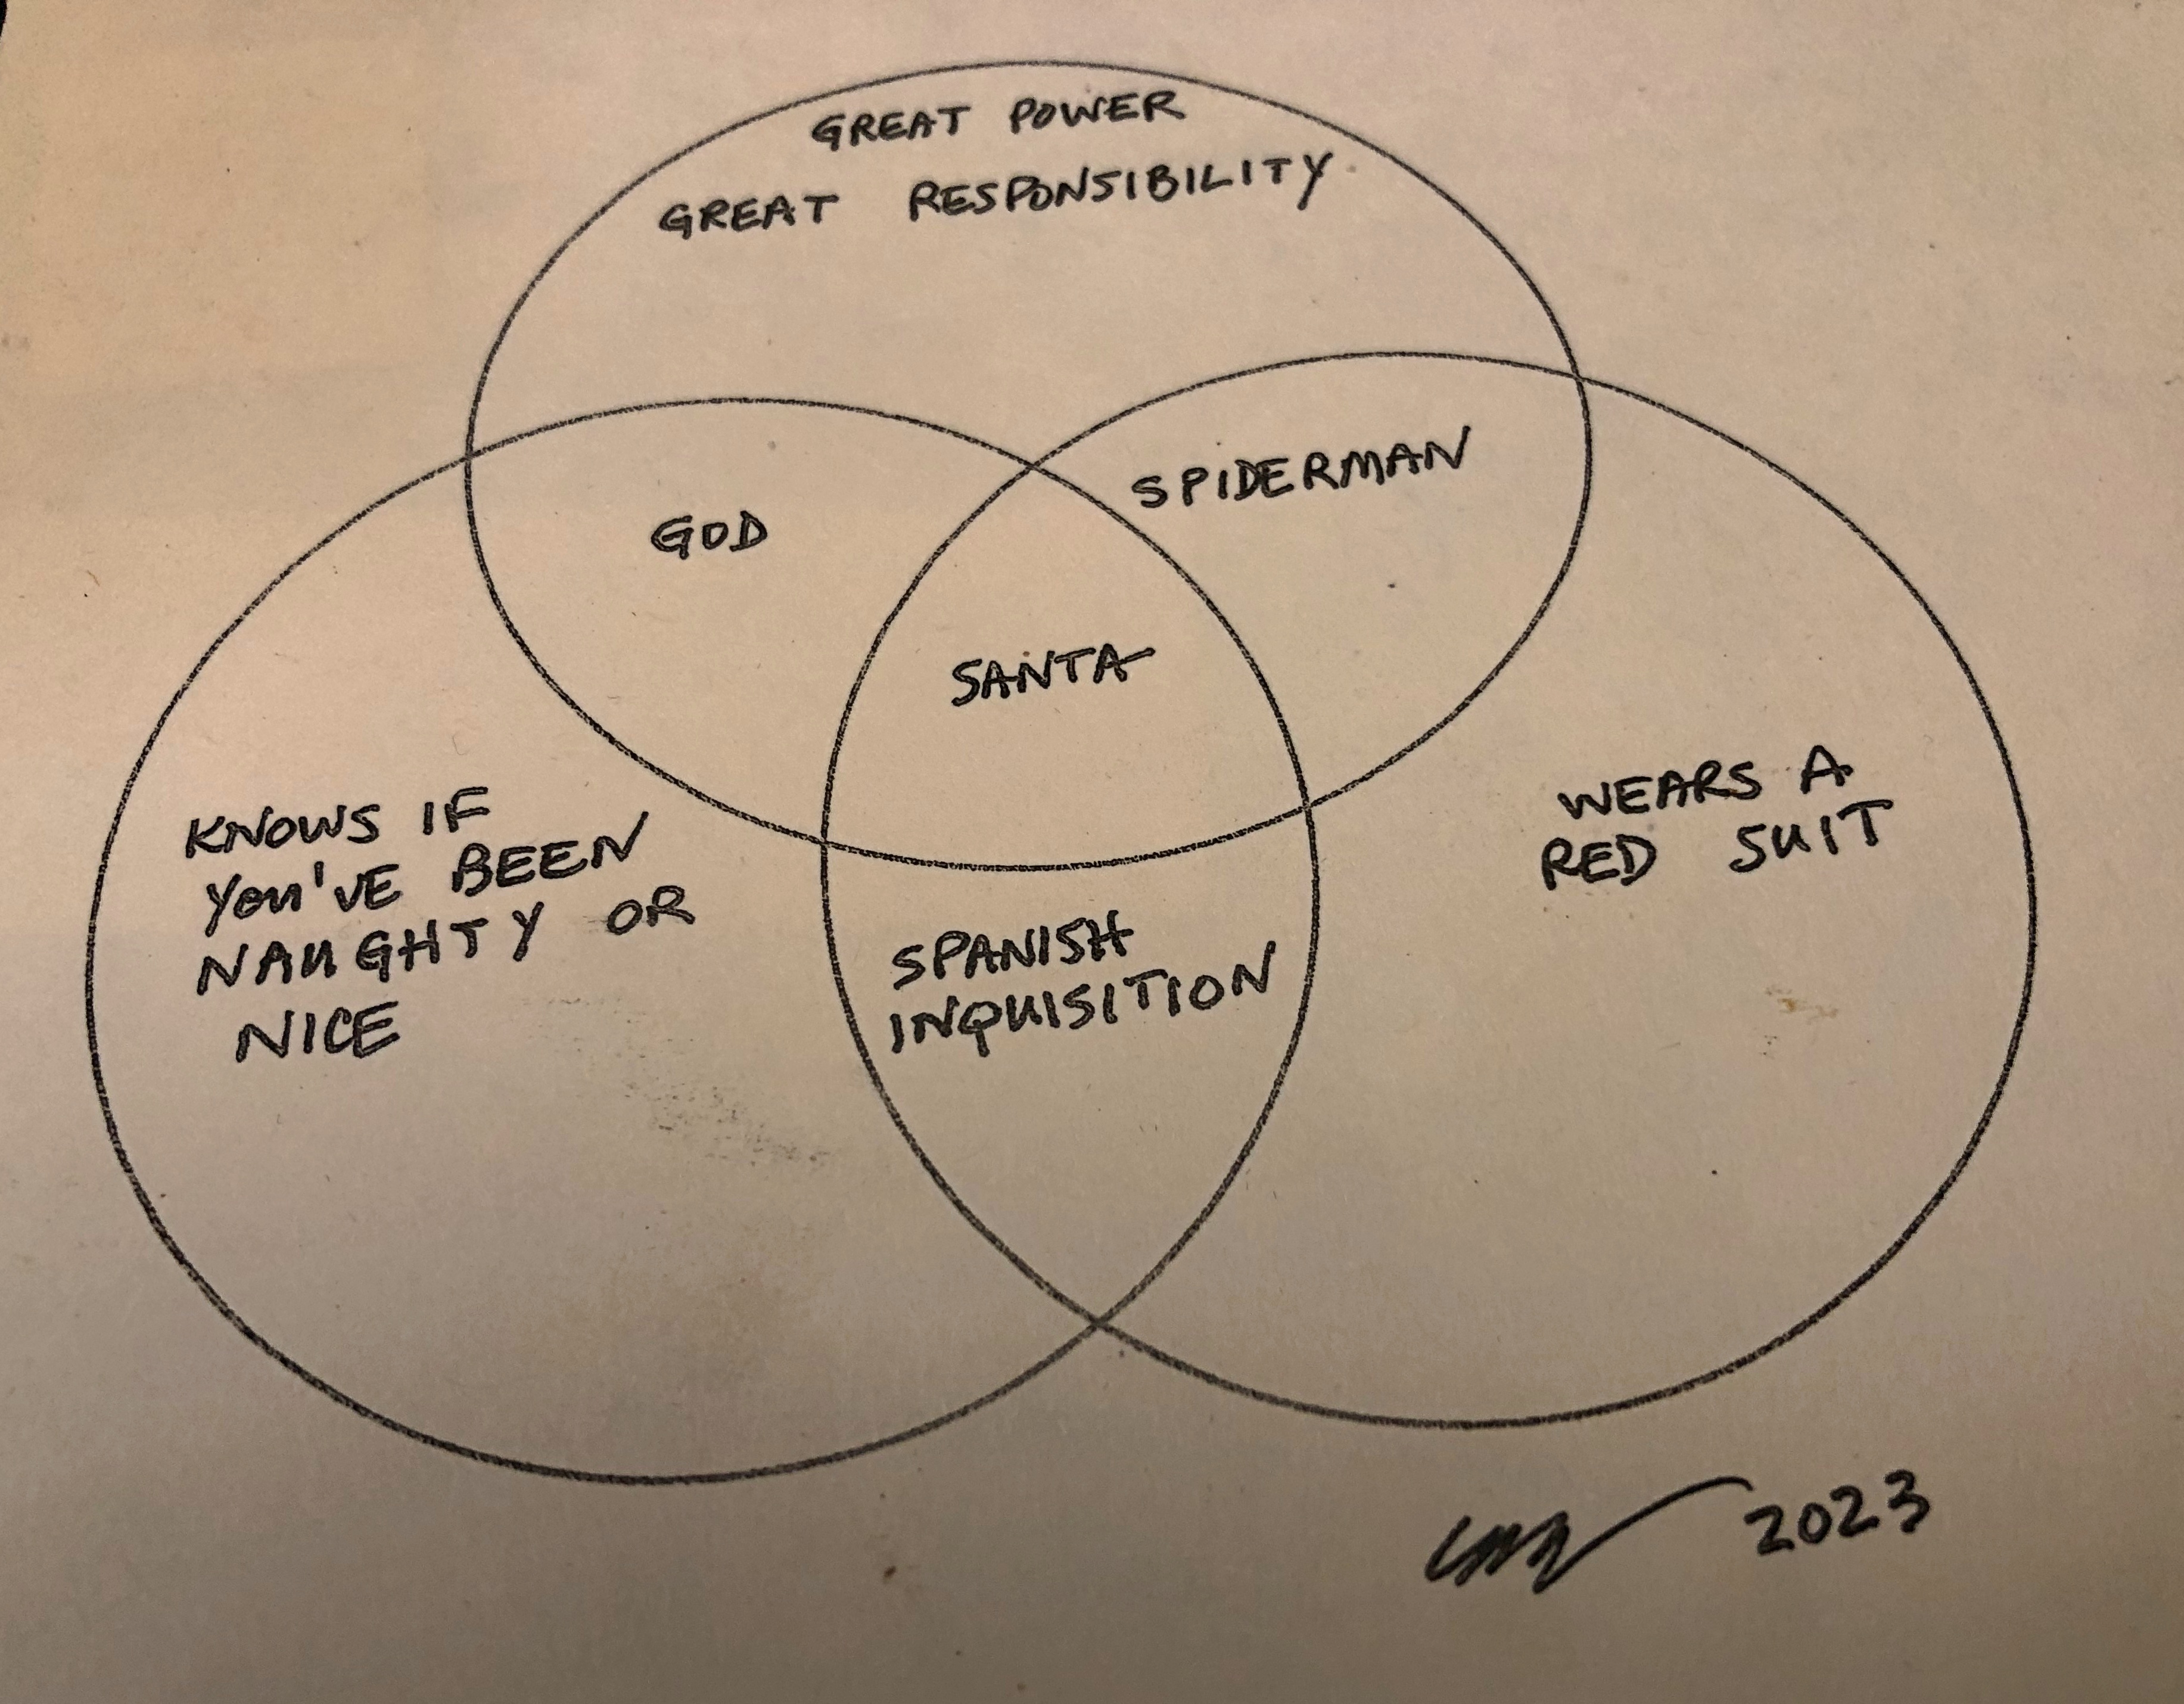 GREAT POWER
GREAT RESPONSIBILITY
SPIDERMAN
GOD
SANTA
KNOWS IF
YOU'VE BEEN
NAUGHTY OR
NICE
WEARS A
RED SUIT
SPANISH
INQUISITION
2023